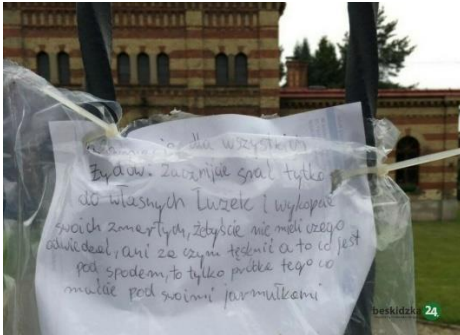 dla wszystkich
Żydów. Zacznijcie srać tylko
do własnych łużek i wykopcie
swoich zmarłych, żebyście nie mieli czego
odwiedzać, ani za czym tęsknić a to co jest
pod spodem, to tylko próbka tego co
macie pod swoimi jarmułkami
beskidzka24